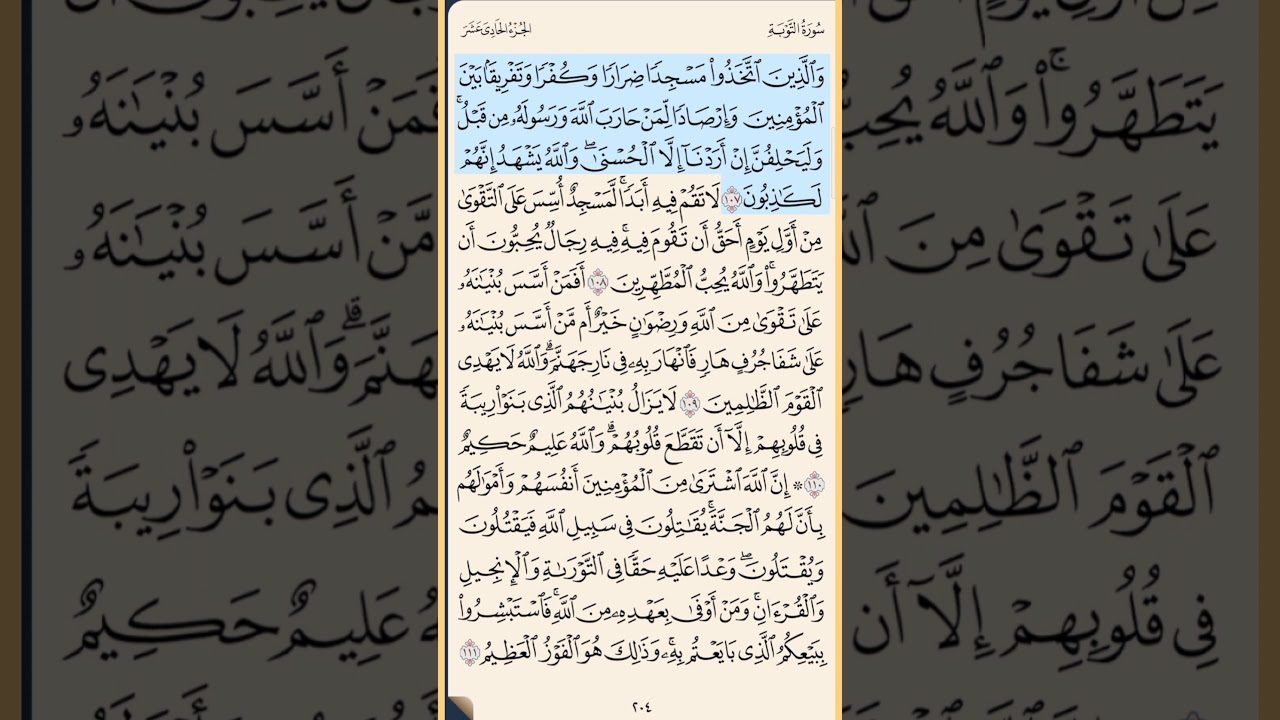 سُورَةُ التَّوْبَةِ
الجُزْءُ الحَادِي عَشَرَ
وَٱلَّذِينَ ٱتَّخَذُوا۟ مَسْجِدًا ضِرَارًا وَكُفْرًا وَتَفْرِيقًۢا بَيْنَ
ٱلْمُؤْمِنِينَ وَإِرْصَادًا لِّمَنْ حَارَبَ ٱللَّهَ وَرَسُولَهُۥ مِن قَبْلُ ۚ
وَلَيَحْلِفُنَّ إِنْ أَرَدْنَآ إِلَّا ٱلْحُسْنَىٰ ۖ وَٱللَّهُ يَشْهَدُ إِنَّهُمْ
لَكَـٰذِبُونَ ١٠٧ لَا تَقُمْ فِيهِ أَبَدًا ۚ لَّمَسْجِدٌ أُسِّسَ عَلَى ٱلتَّقْوَىٰ
مِنْ أَوَّلِ يَوْمٍ أَحَقُّ أَن تَقُومَ فِيهِ ۚ فِيهِ رِجَالٌ يُحِبُّونَ أَن
يَتَطَهَّرُوا۟ ۚ وَٱللَّهُ يُحِبُّ ٱلْمُطَّهِّرِينَ ١٠٨ أَفَمَنْ أَسَّسَ بُنْيَـٰنَهُۥ
عَلَىٰ تَقْوَىٰ مِنَ ٱللَّهِ وَرِضْوَٰنٍ خَيْرٌ أَم مَّنْ أَسَّسَ بُنْيَـٰنَهُۥ
عَلَىٰ شَفَا جُرُفٍ هَارٍ فَٱنْهَارَ بِهِۦ فِى نَارِ جَهَنَّمَ ۗ وَٱللَّهُ لَا يَهْدِى
ٱلْقَوْمَ ٱلظَّـٰلِمِينَ ١٠٩ لَا يَزَالُ بُنْيَـٰنُهُمُ ٱلَّذِى بَنَوْا۟ رِيبَةً
فِى قُلُوبِهِمْ إِلَّآ أَن تَقَطَّعَ قُلُوبُهُمْ ۗ وَٱللَّهُ عَلِيمٌ حَكِيمٌ
١١٠ ۞ إِنَّ ٱللَّهَ ٱشْتَرَىٰ مِنَ ٱلْمُؤْمِنِينَ أَنفُسَهُمْ وَأَمْوَٰلَهُم
بِأَنَّ لَهُمُ ٱلْجَنَّةَ ۚ يُقَـٰتِلُونَ فِى سَبِيلِ ٱللَّهِ فَيَقْتُلُونَ
وَيُقْتَلُونَ ۖ وَعْدًا عَلَيْهِ حَقًّا فِى ٱلتَّوْرَىٰةِ وَٱلْإِنجِيلِ
وَٱلْقُرْءَانِ ۚ وَمَنْ أَوْفَىٰ بِعَهْدِهِۦ مِنَ ٱللَّهِ ۚ فَٱسْتَبْشِرُوا۟
بِبَيْعِكُمُ ٱلَّذِى بَايَعْتُم بِهِۦ ۚ وَذَٰلِكَ هُوَ ٱلْفَوْزُ ٱلْعَظِيمُ ١١١
٢٠٤